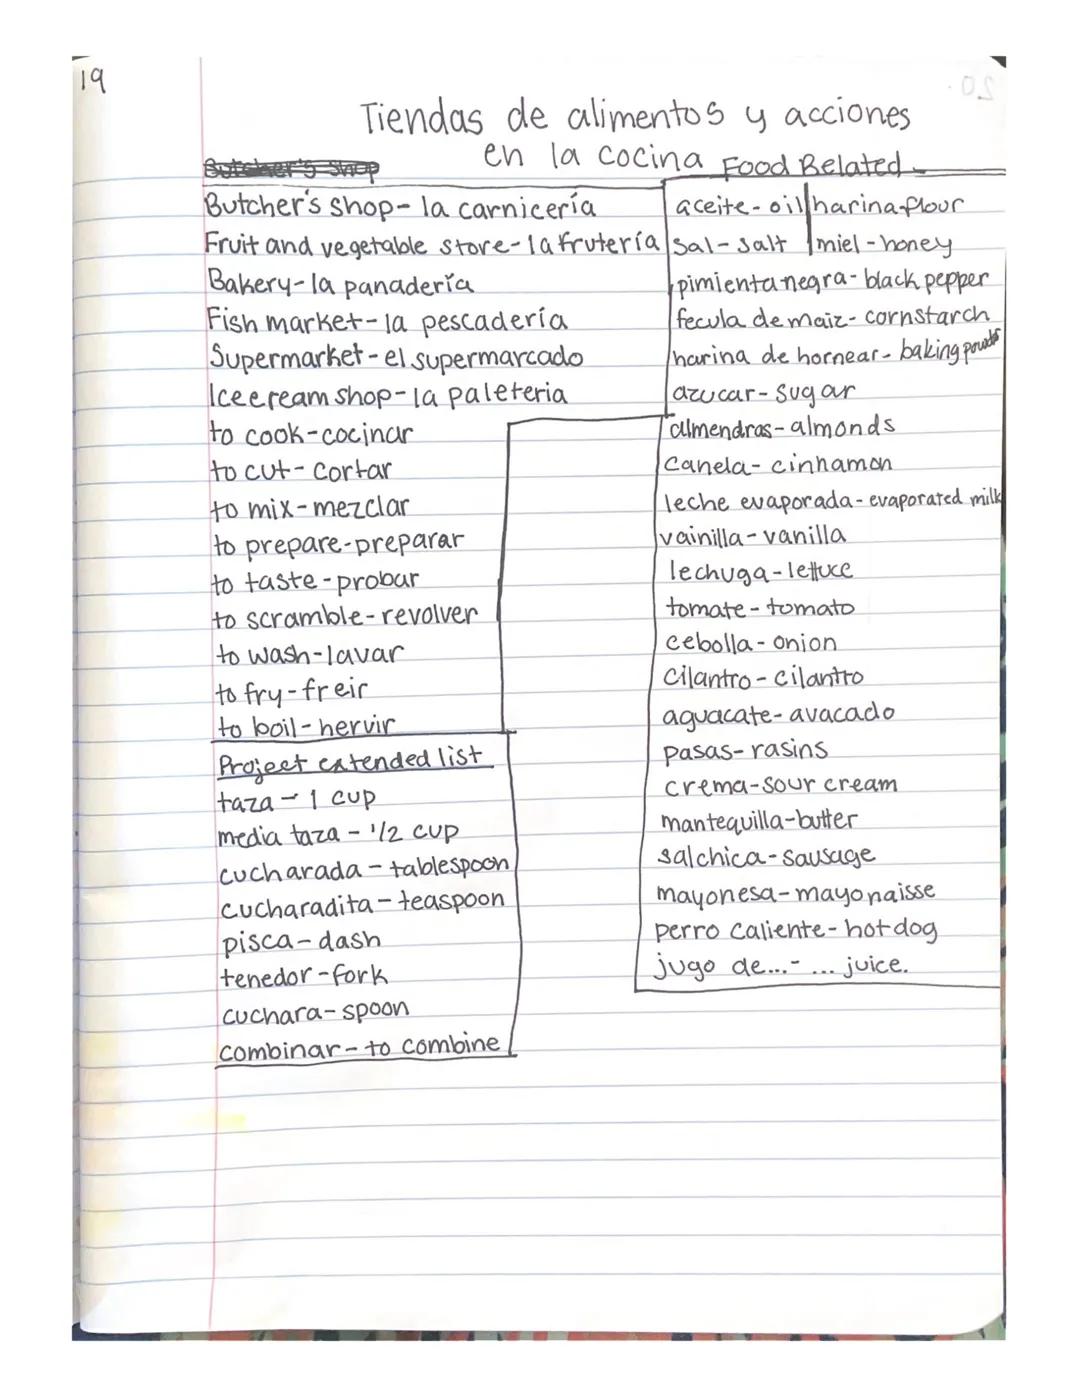 19
Tiendas de alimentos y acciones
en la cocina
Butcher's shop
Butcher's shop- la carnicería
Fruit and vegetable store- la frutería
Bakery- la panadería
Fish market- la pescadería
Supermarket- el supermarcado
Ice cream shop- la paleteria
to cook- cocinar
to cut- cortar
to mix- mezclar
to prepare- preparar
to taste- probar
to scramble- revolver
to wash- lavar
to fry- freir
to boil- hervir
Project extended list
taza - 1 cup
media taza - 1/2 cup
cucharada - tablespoon
cucharadita - teaspoon
pisca - dash
tenedor - fork
cuchara - spoon
combinar - to combine
Food Related
aceite - oil harina - flour
sal - salt miel - honey
pimienta negra - black pepper
fecula de maiz - cornstarch
harina de hornear - baking powder
azucar - sugar
almendras - almonds
canela - cinnamon
leche evaporada - evaporated milk
vainilla - vanilla
lechuga - lettuce
tomate - tomato
cebolla - onion
cilantro - cilantro
aguacate - avacado
pasas - rasins
crema - sour cream
mantequilla - butter
salchica - sausage
mayonesa - mayonaisse
perro caliente - hot dog
jugo de...- ... juice.
20